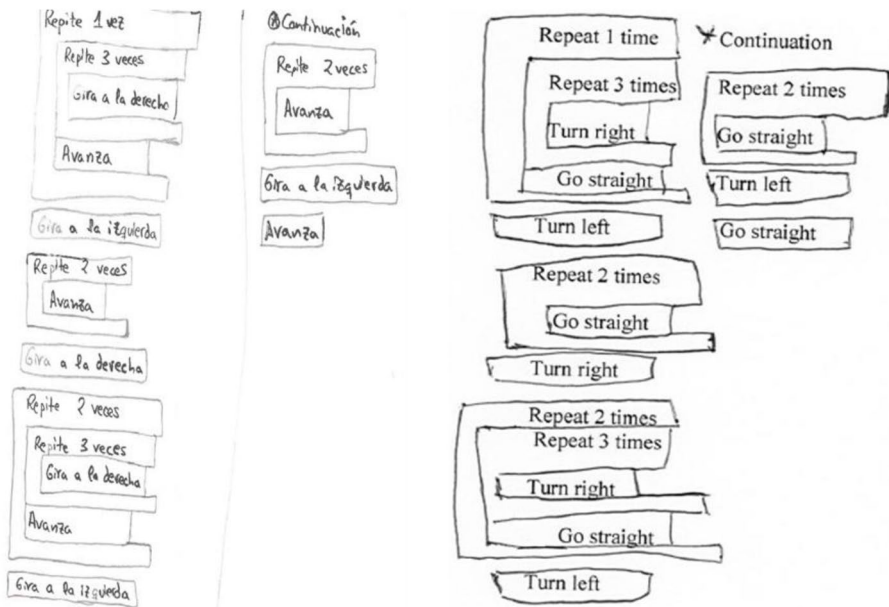 Repite 1 vez
Repite 3 veces
Gira a la derecho
Avanza
Gira a la izquierda
Repite 2 veces
Avanza
Gira a la derecha
Repite 2 veces
Repite 3 veces
Gira a la derecha
Avanza
Gira a la izquierda
⊛ Continuación
Repite 2 veces
Avanza
Gira a la izquierda
Avanza
Repeat 1 time
Repeat 3 times
Turn right
Go straight
Turn left
Repeat 2 times
Go straight
Turn right
Repeat 2 times
Repeat 3 times
Turn right
Go straight
Turn left
* Continuation
Repeat 2 times
Go straight
Turn left
Go straight